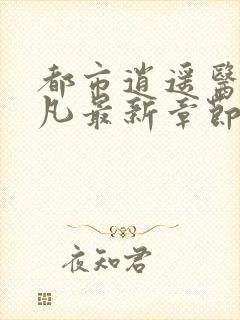 都市逍遥醫
凡最新章節
夜知君